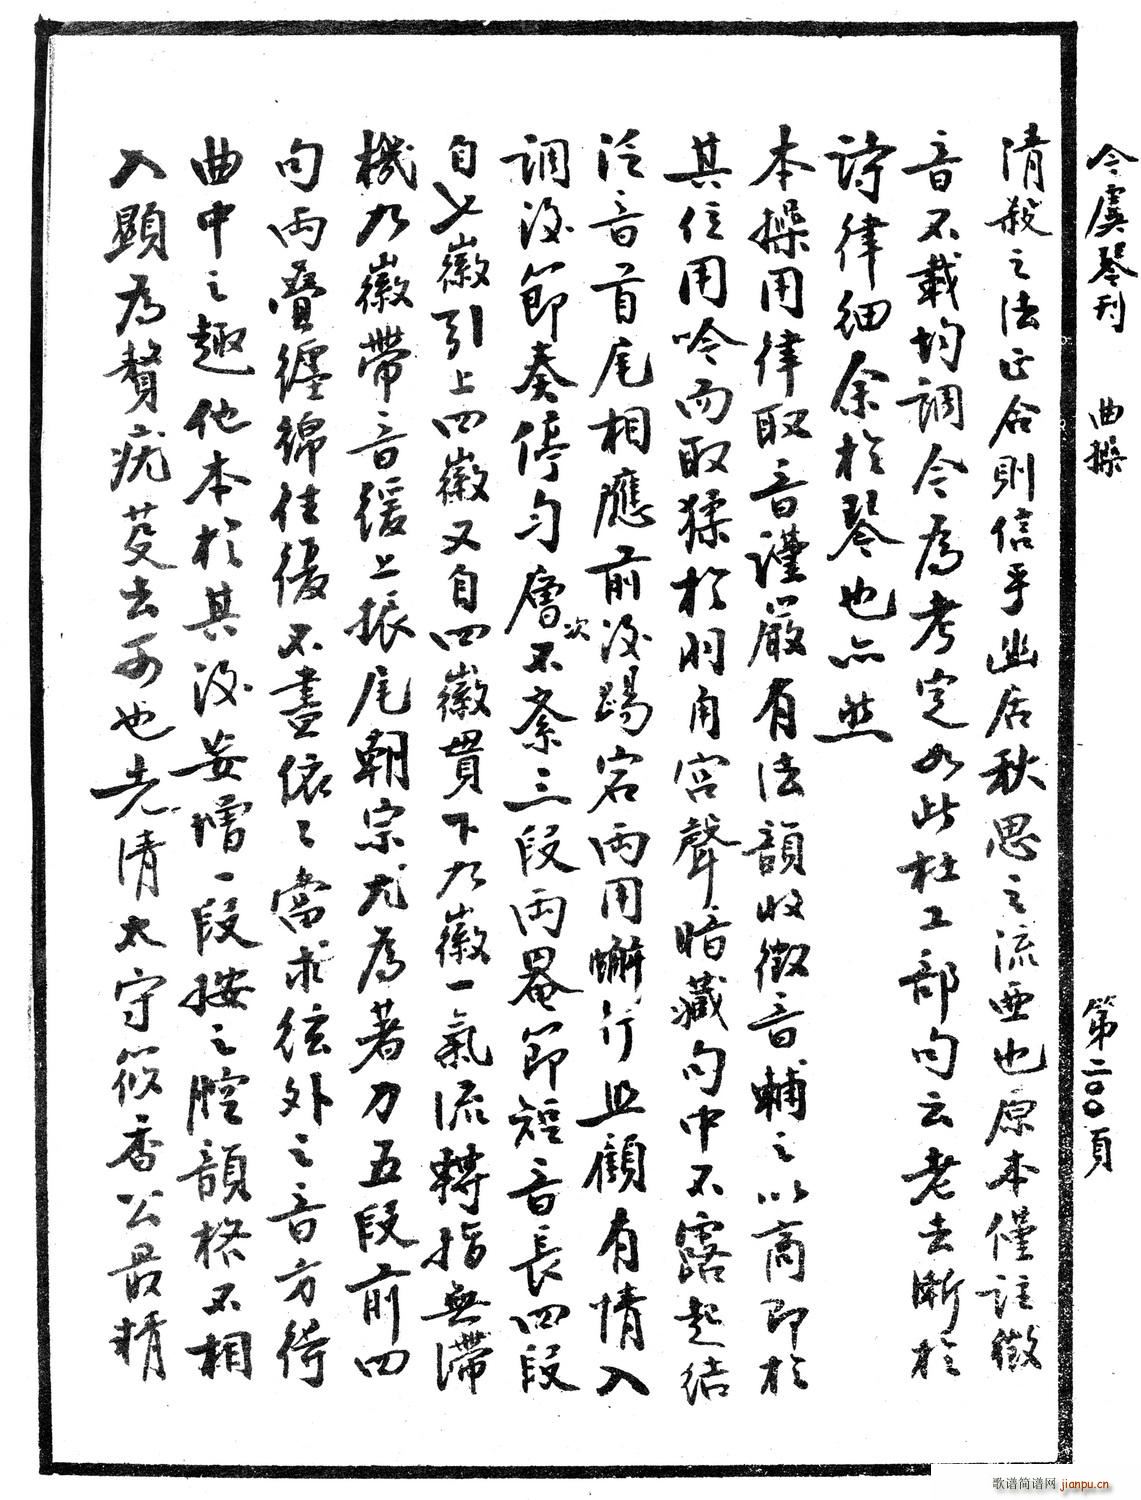 今虞琴刊　曲操　第二〇〇頁
清殺之法正合則信乎幽居秋思之流亞也原本僅註徵
音不載均調今為考定如此杜工部句云老去漸於
詩律細余於琴也亦然
本操用律取音謹嚴有法韻收徵音輔之以商即於
其位用吟而取猱於羽角宮聲暗藏句中不露起結
泛音首尾相應前後踢宕兩用蠏行且顧有情入
調後節奏停勻層次不紊三段兩罨節短音長四段
自七徽引上四徽又自四徽貫下九徽一氣流轉指無滯
機九徽帶音緩上振尾朝宗尤為著力五段前四
句兩疊纏綿往復不盡依〻當求絃外之音方得
曲中之趣他本於其後妄增一段按之腔韻格不相
入顯為贅疣芟去可也先清太守筱香公最精
歌谱简谱网 jianpu.cn